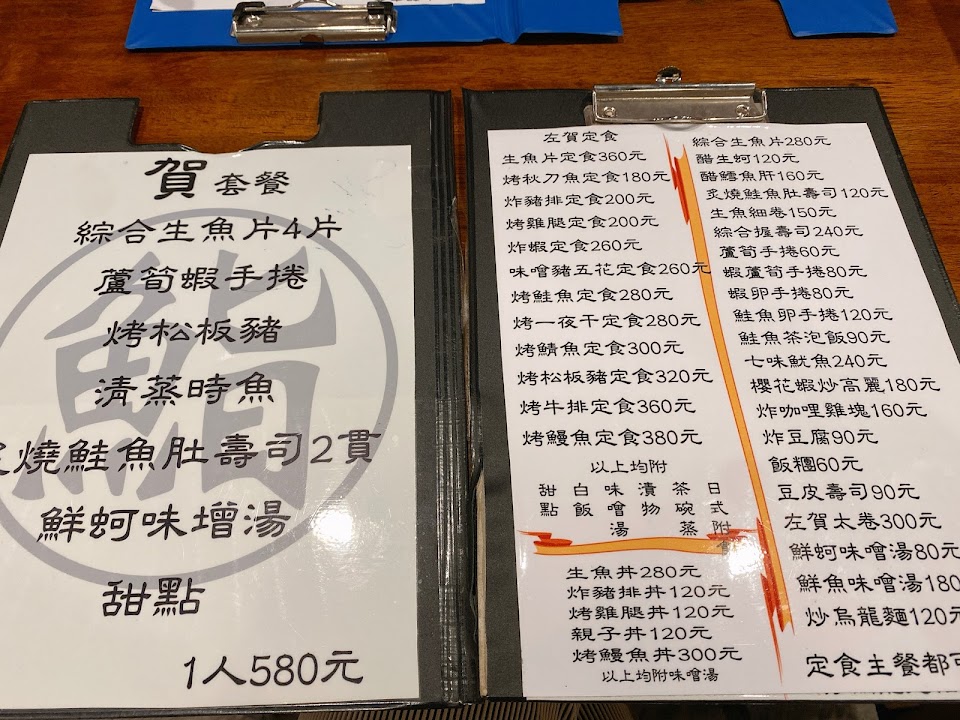 賀 套餐
綜合生魚片4片
蘆筍蝦手捲
烤松板豬
清蒸時魚
燒鮭魚肚壽司2貫
鮮蚵味增湯
甜點
1人580元
鮨
左賀定食
生魚片定食360元
烤秋刀魚定食180元
炸豬排定食200元
烤雞腿定食200元
炸蝦定食260元
味噌豬五花定食260元
烤鮭魚定食280元
烤一夜干定食280元
烤鯖魚定食300元
烤松板豬定食320元
烤牛排定食360元
烤鰻魚定食380元
以上均附
日式附
茶碗蒸
漬物
味噌湯
白飯
甜點
生魚丼280元
炸豬排丼120元
烤雞腿丼120元
親子丼120元
烤鰻魚丼300元
以上均附味噌湯
綜合生魚片280元
醋生蚵120元
醋鱈魚肝160元
炙燒鮭魚肚壽司120元
生魚細卷150元
綜合握壽司240元
蘆筍手捲60元
蝦蘆筍手捲80元
蝦卵手捲80元
鮭魚卵手捲120元
鮭魚茶泡飯90元
七味魷魚240元
櫻花蝦炒高麗180元
炸咖哩雞塊160元
炸豆腐90元
飯糰60元
豆皮壽司90元
左賀太卷300元
鮮蚵味噌湯80元
鮮魚味噌湯180
炒烏龍麵120元
定食主餐都可